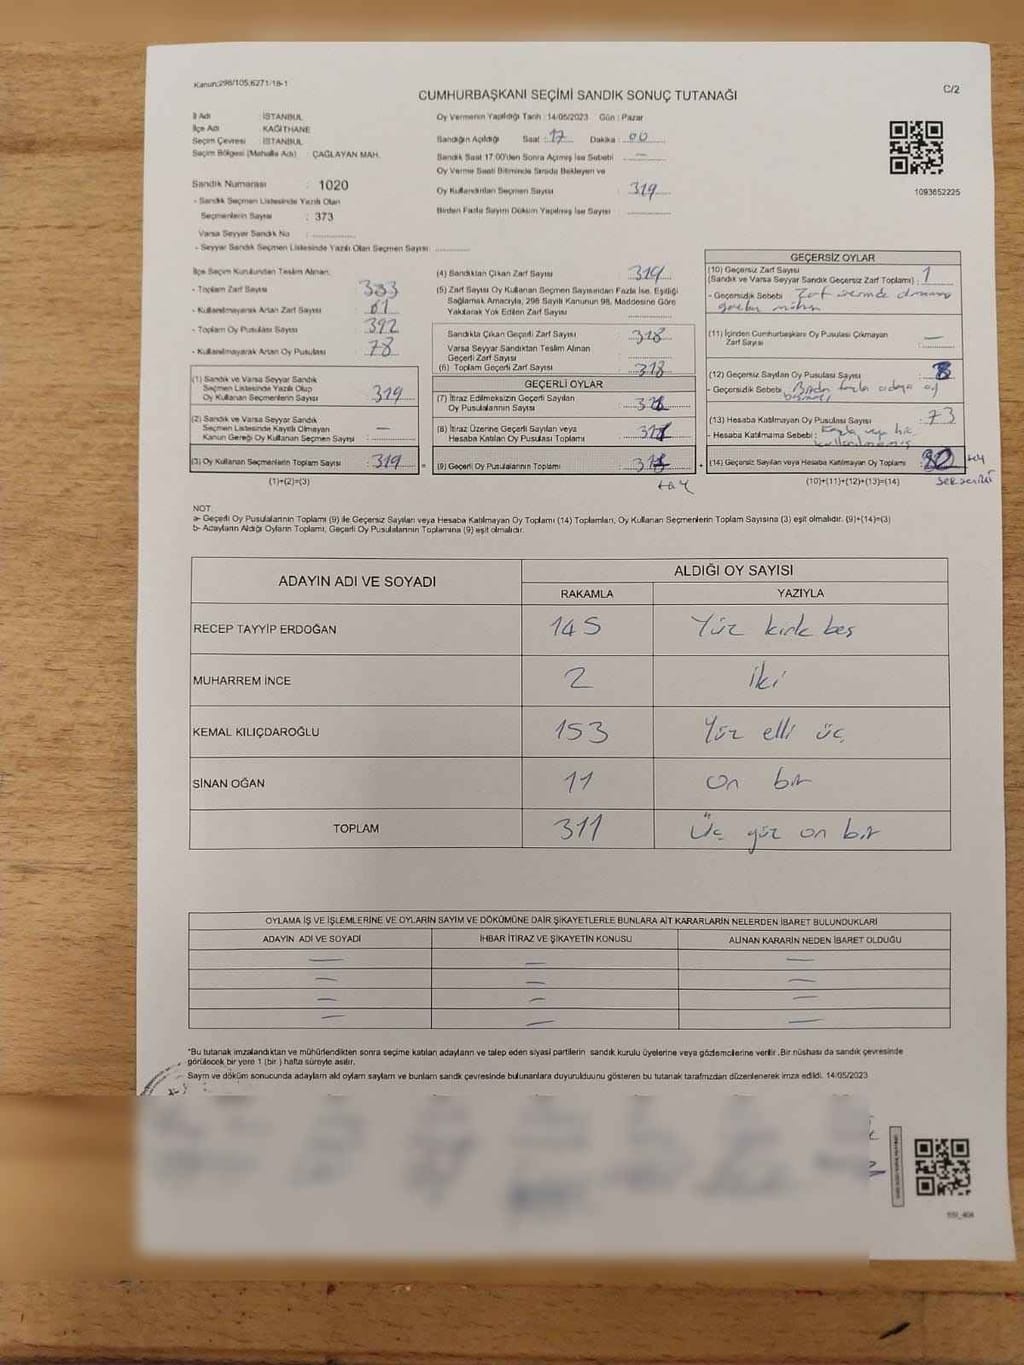 Kanun:298/105,6271/18-1
C/2
CUMHURBAŞKANI SEÇİMİ SANDIK SONUÇ TUTANAĞI
İl Adı : İSTANBUL
İlçe Adı : KAĞITHANE
Seçim Çevresi : İSTANBUL
Seçim Bölgesi (Mahalle Adı) : ÇAĞLAYAN MAH.
Sandık Numarası : 1020
- Sandık Seçmen Listesinde Yazılı Olan
Seçmenlerin Sayısı : 373
Varsa Seyyar Sandık No : ............
- Seyyar Sandık Seçmen Listesinde Yazılı Olan Seçmen Sayısı: ............
Oy Vermenin Yapıldığı Tarih :14/05/2023 Gün : Pazar
Sandığın Açıldığı Saat : 17 Dakika : 00
Sandık Saat 17:00'den Sonra Açılmış İse Sebebi : —
Oy Verme Saati Bitiminde Sırada Bekleyen ve
Oy Kullandırılan Seçmen Sayısı : 319
Birden Fazla Sayım Döküm Yapılmış İse Sayısı : ............
1093652225
İlçe Seçim Kurulundan Teslim Alınan:
- Toplam Zarf Sayısı : 383
- Kullanılmayarak Artan Zarf Sayısı : 61
- Toplam Oy Pusulası Sayısı : 392
- Kullanılmayarak Artan Oy Pusulası : 78
(1) Sandık ve Varsa Seyyar Sandık
Seçmen Listesinde Yazılı Olup
Oy Kullanan Seçmenlerin Sayısı : 319
(2) Sandık ve Varsa Seyyar Sandık
Seçmen Listesinde Kayıtlı Olmayan
Kanun Gereği Oy Kullanan Seçmen Sayısı : —
(3) Oy Kullanan Seçmenlerin Toplam Sayısı : 319
(1)+(2)=(3)
(4) Sandıktan Çıkan Zarf Sayısı : 319
(5) Zarf Sayısı Oy Kullanan Seçmen Sayısından Fazla İse, Eşitliği
Sağlamak Amacıyla, 298 Sayılı Kanunun 98. Maddesine Göre
Yakılarak Yok Edilen Zarf Sayısı : ............
Sandıkta Çıkan Geçerli Zarf Sayısı : 318
Varsa Seyyar Sandıktan Teslim Alınan
Geçerli Zarf Sayısı : ............
(6) Toplam Geçerli Zarf Sayısı : 318
GEÇERLİ OYLAR
(7) İtiraz Edilmeksizin Geçerli Sayılan
Oy Pusulalarının Sayısı :
(8) İtiraz Üzerine Geçerli Sayılan veya
Hesaba Katılan Oy Pusulası Toplamı :
= (9) Geçerli Oy Pusulalarının Toplamı : +
GEÇERSİZ OYLAR
(10) Geçersiz Zarf Sayısı
(Sandık ve Varsa Seyyar Sandık Geçersiz Zarf Toplamı) : 1
- Geçersizlik Sebebi : Zarf üzerinde
(11) İçinden Cumhurbaşkanı Oy Pusulası Çıkmayan
Zarf Sayısı : —
(12) Geçersiz Sayılan Oy Pusulası Sayısı :
- Geçersizlik Sebebi : Birden fazla adaya oy
(13) Hesaba Katılmayan Oy Pusulası Sayısı : 73
- Hesaba Katılmama Sebebi : Fazla veya hiç
kullanılmamış
(14) Geçersiz Sayılan veya Hesaba Katılmayan Oy Toplamı :
(10)+(11)+(12)+(13)=(14)
NOT
a- Geçerli Oy Pusulalarının Toplamı (9) ile Geçersiz Sayılan veya Hesaba Katılmayan Oy Toplamı (14) Toplamları, Oy Kullanan Seçmenlerin Toplam Sayısına (3) eşit olmalıdır. (9)+(14)=(3)
b- Adayların Aldığı Oyların Toplamı, Geçerli Oy Pusulalarının Toplamına (9) eşit olmalıdır.
ADAYIN ADI VE SOYADI
ALDIĞI OY SAYISI
RAKAMLA YAZIYLA
RECEP TAYYİP ERDOĞAN 145 Yüz kırk beş
MUHARREM İNCE 2 iki
KEMAL KILIÇDAROĞLU 153 Yüz elli üç
SİNAN OĞAN 11 on bir
TOPLAM 311 Üç yüz on bir
OYLAMA İŞ VE İŞLEMLERİNE VE OYLARIN SAYIM VE DÖKÜMÜNE DAİR ŞİKAYETLERLE BUNLARA AİT KARARLARIN NELERDEN İBARET BULUNDUKLARI
ADAYIN ADI VE SOYADI İHBAR İTİRAZ VE ŞİKAYETİN KONUSU ALINAN KARARIN NEDEN İBARET OLDUĞU
— — —
— — —
— — —
— — —
*Bu tutanak imzalandıktan ve mühürlendikten sonra seçime katılan adayların ve talep eden siyasi partilerin sandık kurulu üyelerine veya gözlemcilerine verilir .Bir nüshası da sandık çevresinde
görülecek bir yere 1 (bir ) hafta süreyle asılır.
Sayım ve döküm sonucunda adayların aldığı oyların sayısını ve bunların sandık çevresinde bulunanlara duyurulduğunu gösteren bu tutanak tarafımızdan düzenlenerek imza edildi. 14/05/2023